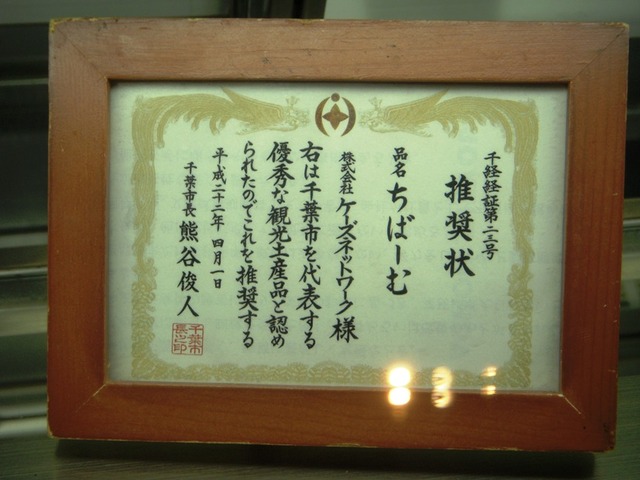 千経経証第二三号
推奨状
品名 ちばーむ
株式会社 ケーズネットワーク 様
右は千葉市を代表する
優秀な観光土産品と認め
られたのでこれを推奨する
平成二十二年 四月一日
千葉市長 熊谷俊人
千葉市
長之印